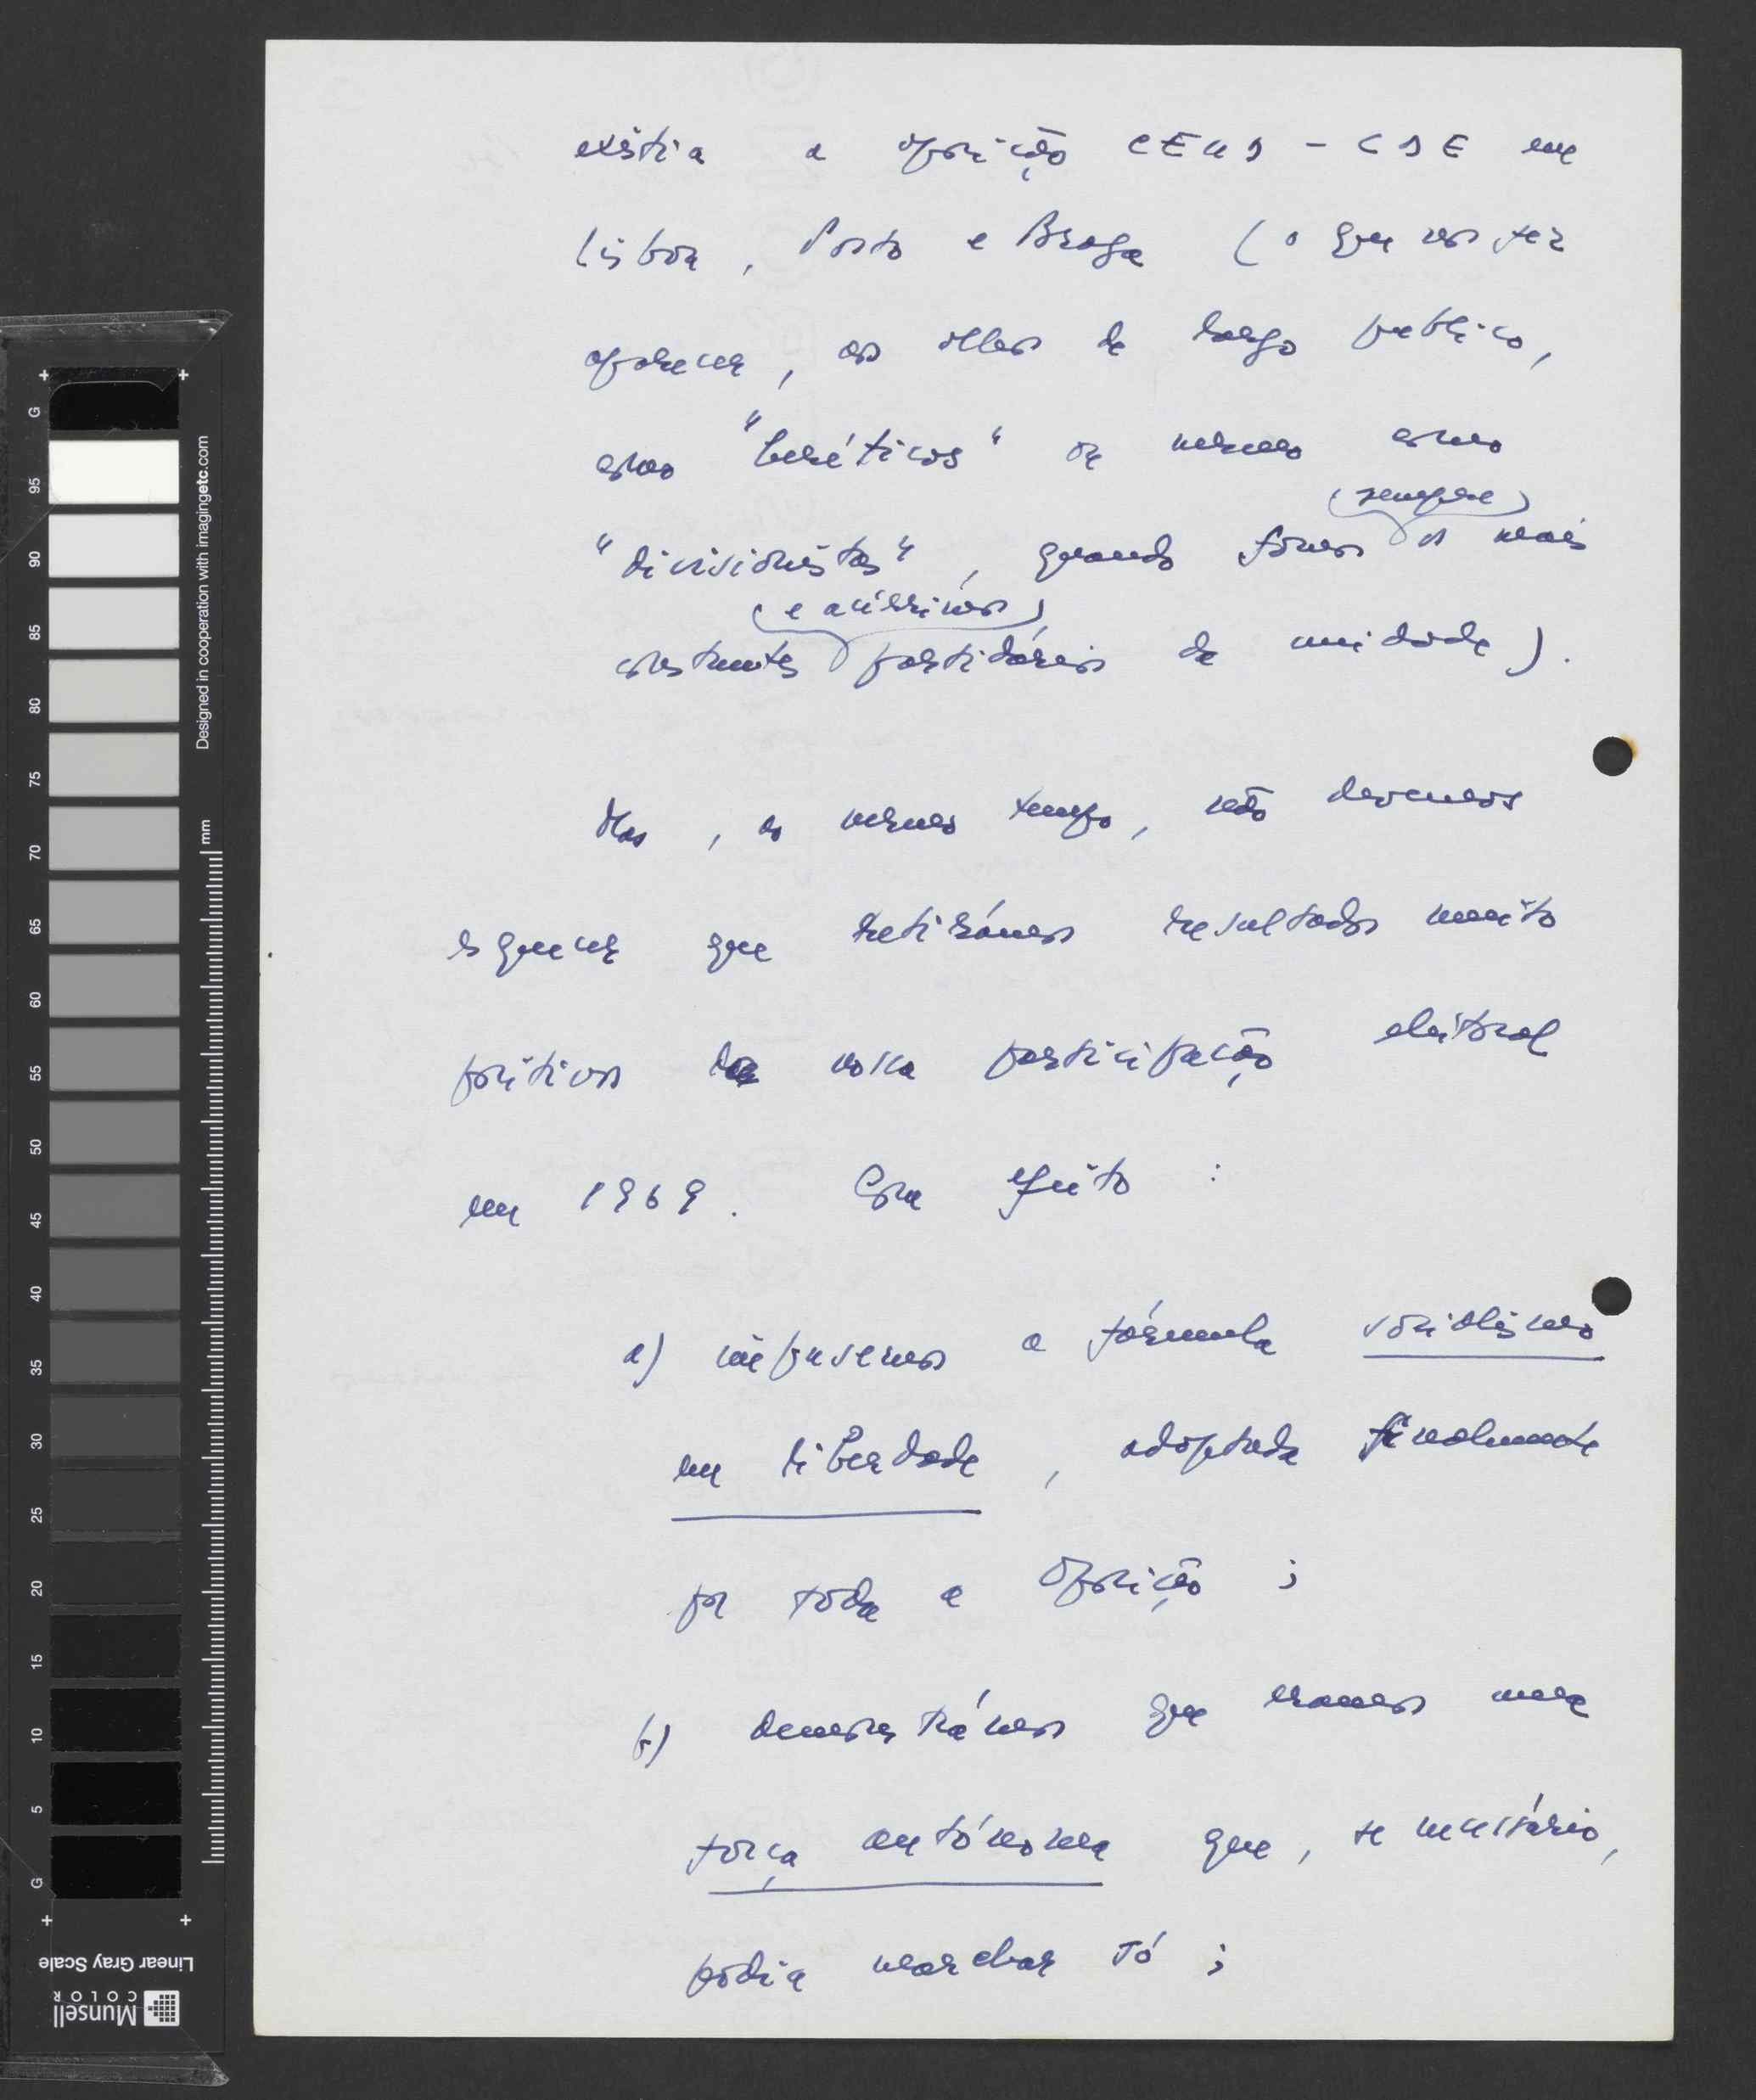 existia a oposição CEUD - CDE em
Lisboa, Porto e Braga (o que nos fez
aparecer, aos olhos do largo público,
como "heréticos" ou mesmo como
(sempre)
"divisionistas", quando fomos os mais
(e acérrimos)
constantes partidários da unidade).
Mas, ao mesmo tempo, não devemos
esquecer que retirámos resultados muito
positivos da nossa participação eleitoral
em 1969. Com efeito:
a) impusemos a fórmula socialismo
em liberdade, adoptada finalmente
por toda a Oposição;
b) demonstrámos que eramos uma
força autónoma que, se necessário,
podia marchar só;
G 95 90 85 80 75 70 65 60 55 50 45 40 35 30 25 20 15 10 5 G
Designed in cooperation with imagingetc.com
mm
Linear Gray Scale
Munsell
COLOR